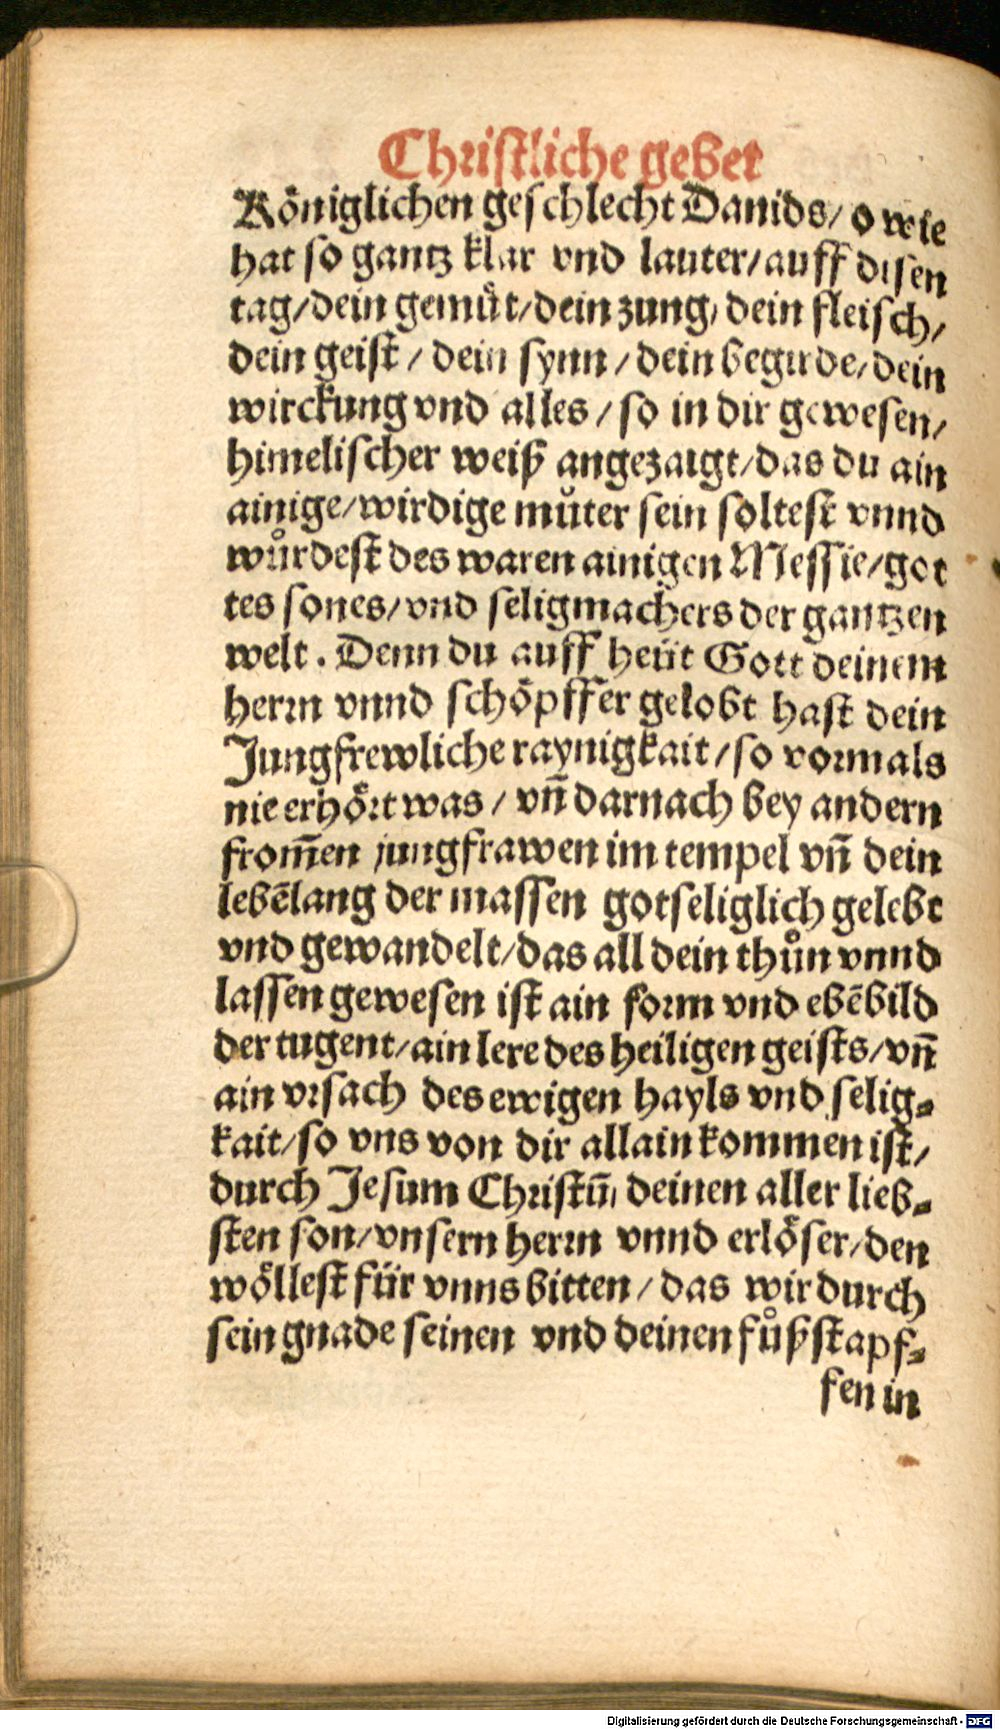 Christliche gebet
Königlichen geschlecht Dauids/ o wie
hat so gantz klar vnd lauter/auff disen
tag/dein gemüt/dein zung/ dein fleisch/
dein geist / dein synn / dein begirde/dein
wirckung vnd alles / so in dir gewesen/
himelischer weiß angezaigt/das du ain
ainige/wirdige můter sein soltest vnnd
wůrdest des waren ainigen Messie/got
tes sones/vnd seligmachers der gantzen
welt . Denn du auff heüt Gott deinem
herrn vnnd schöpffer gelobt hast dein
Jungfrewliche raynigkait/so vormals
nie erhört was / vn̄ darnach bey andern
from̄en jungfrawen im tempel vn̄ dein
lebēlang der massen gotseliglich gelebt
vnd gewandelt/das all dein thůn vnnd
lassen gewesen ist ain form vnd ebēbild
der tugent/ain lere des heiligen geists/vn̄
ain vrsach des ewigen hayls vnd selig⸗
kait/so vns von dir allain kommen ist/
durch Jesum Christū/ deinen aller lieb⸗
sten son/vnsern herrn vnnd erlöser/den
wöllest für vnns bitten / das wir durch
sein gnade seinen vnd deinen fůßstapf⸗
fen in
Digitalisierung gefördert durch die Deutsche Forschungsgemeinschaft - DFG